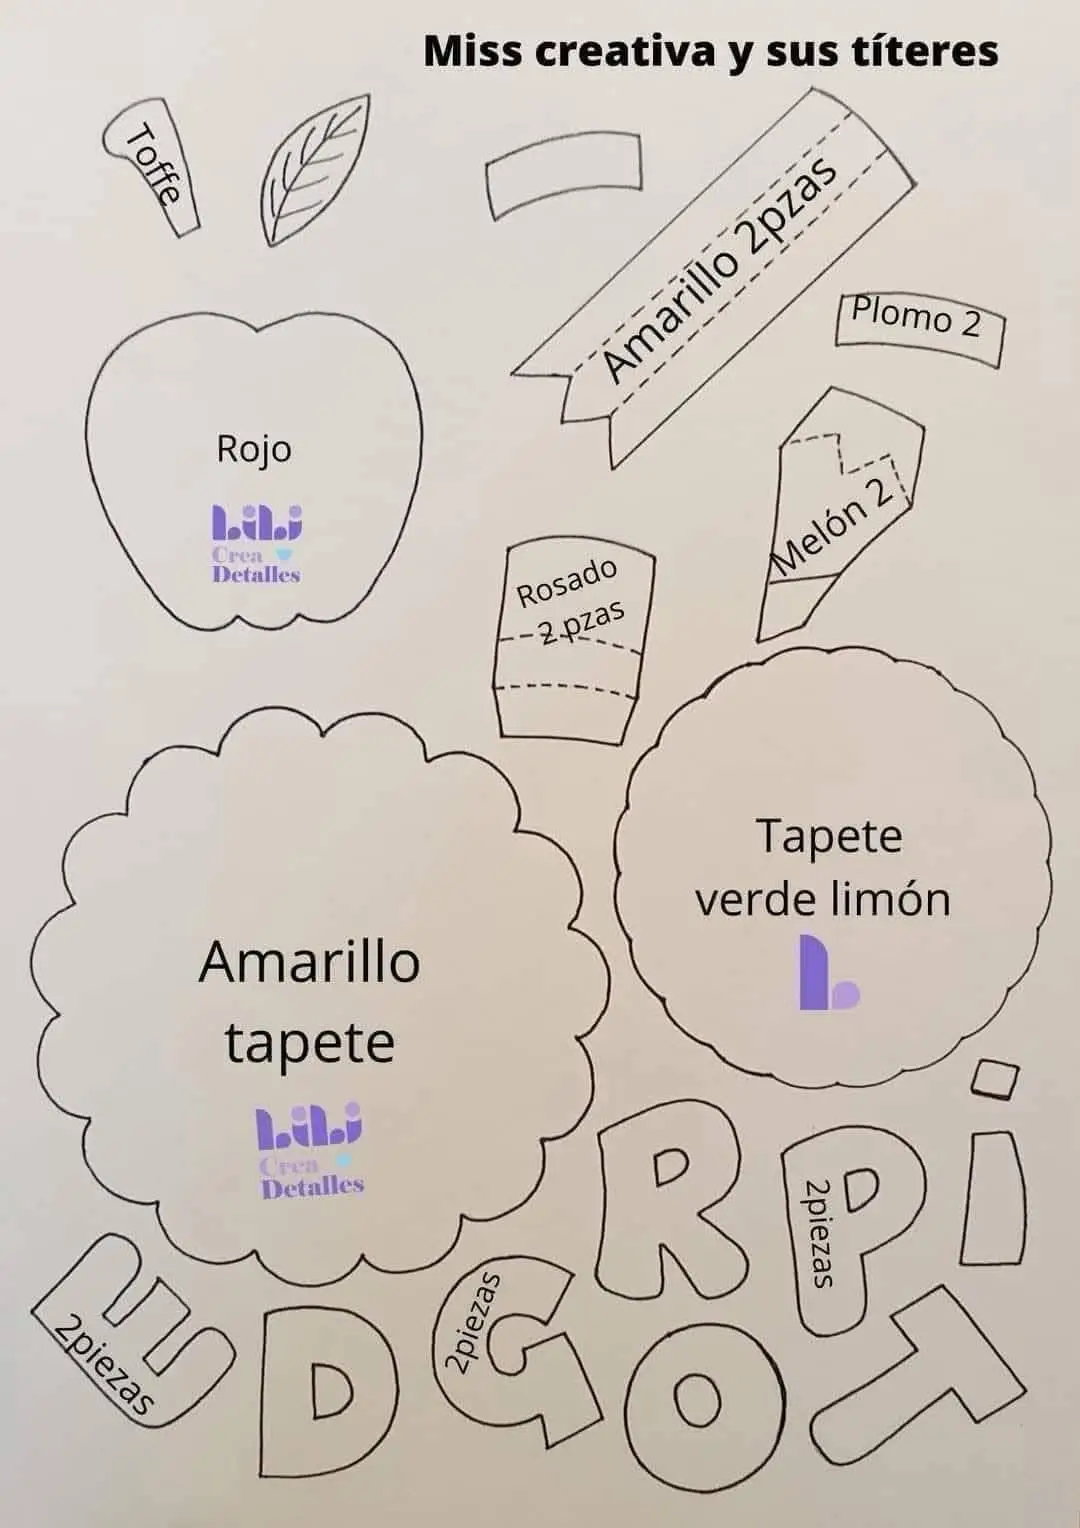 Miss creativa y sus títeres
Toffe
Amarillo 2pzas
Plomo 2
Rojo
LiLi
Crea
Detalles
Melón 2
Rosado
2 pzas
Tapete
verde limón
L
Amarillo
tapete
LiLi
Crea
Detalles
R
P
2piezas
i
E
2piezas
D
G
2piezas
O
T